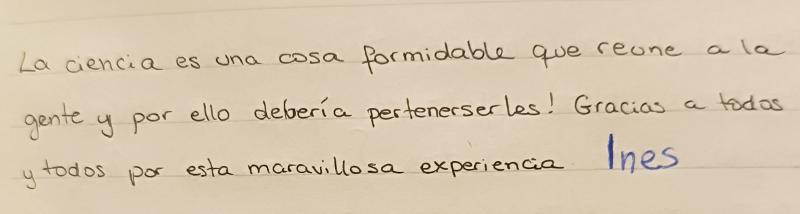 La ciencia es una cosa formidable que reune a la
gente y por ello debería pertenerserles! Gracias a todos
y todos por esta maravillosa experiencia Ines